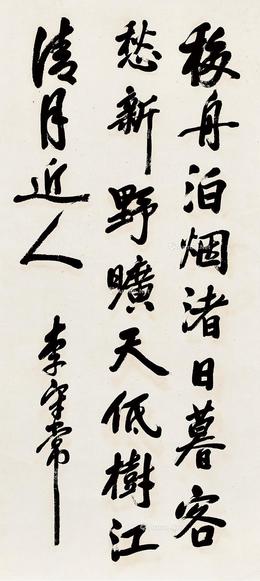 移舟泊烟渚日暮客
愁新野曠天低樹江
清月近人
李守常